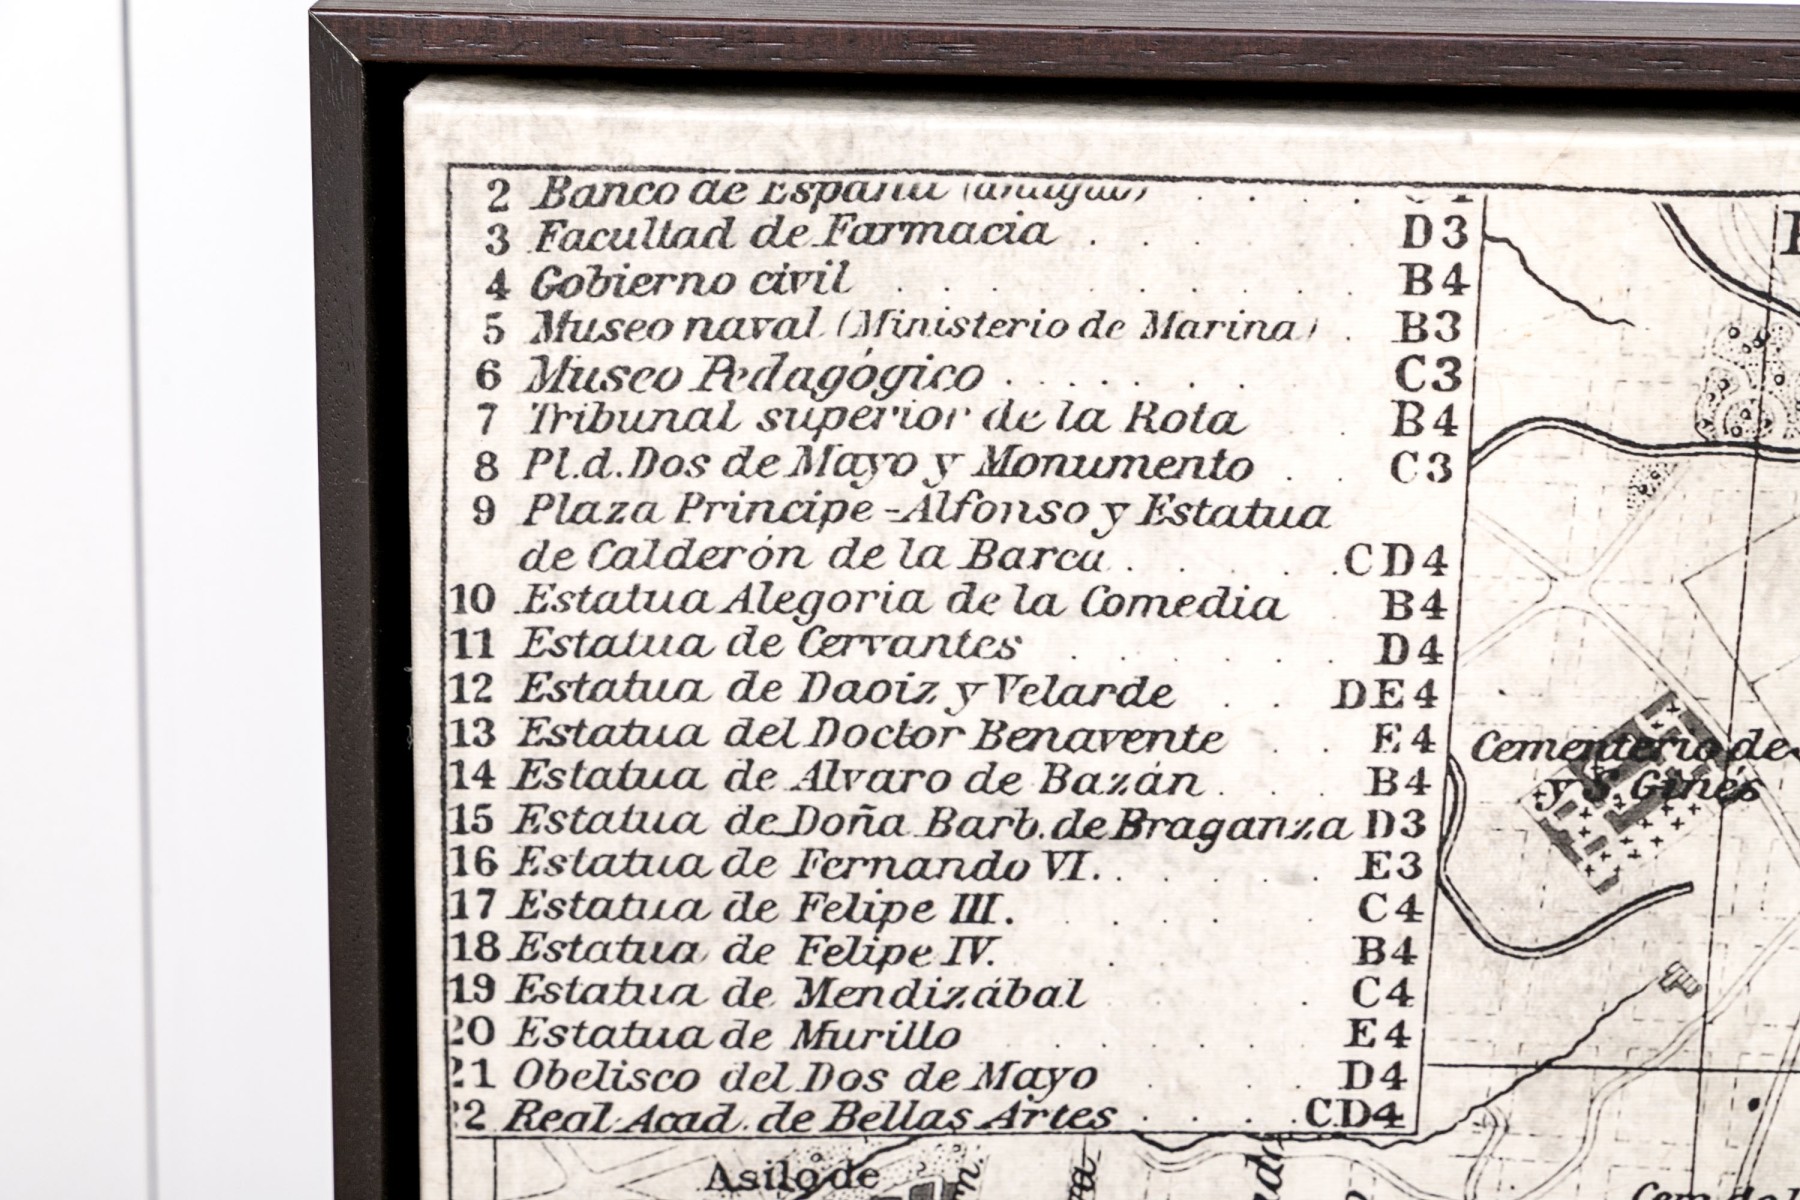 2 Banco de España (antiguo) . . . .
3 Facultad de Farmacia . . . . . D3
4 Gobierno civil . . . . . . . . B4
5 Museo naval (Ministerio de Marina) . B3
6 Museo Pedagógico . . . . . . C3
7 Tribunal superior de la Rota . B4
8 Pl. d. Dos de Mayo y Monumento . . C3
9 Plaza Principe-Alfonso y Estatua
de Calderón de la Barca . . . . . CD4
10 Estatua Alegoria de la Comedia . B4
11 Estatua de Cervantes . . . . . . D4
12 Estatua de Daoiz y Velarde . . DE4
13 Estatua del Doctor Benavente . . E4
14 Estatua de Alvaro de Bazán . . . B4
15 Estatua de Doña Barb. de Braganza D3
16 Estatua de Fernando VI. . . . . . E3
17 Estatua de Felipe III. . . . . C4
18 Estatua de Felipe IV. . . . . . B4
19 Estatua de Mendizábal . . . . C4
20 Estatua de Murillo . . . . . . E4
21 Obelisco del Dos de Mayo . . . D4
22 Real Acad. de Bellas Artes . . . . CD4
Cementerio de
y S. Ginés
Asilo de